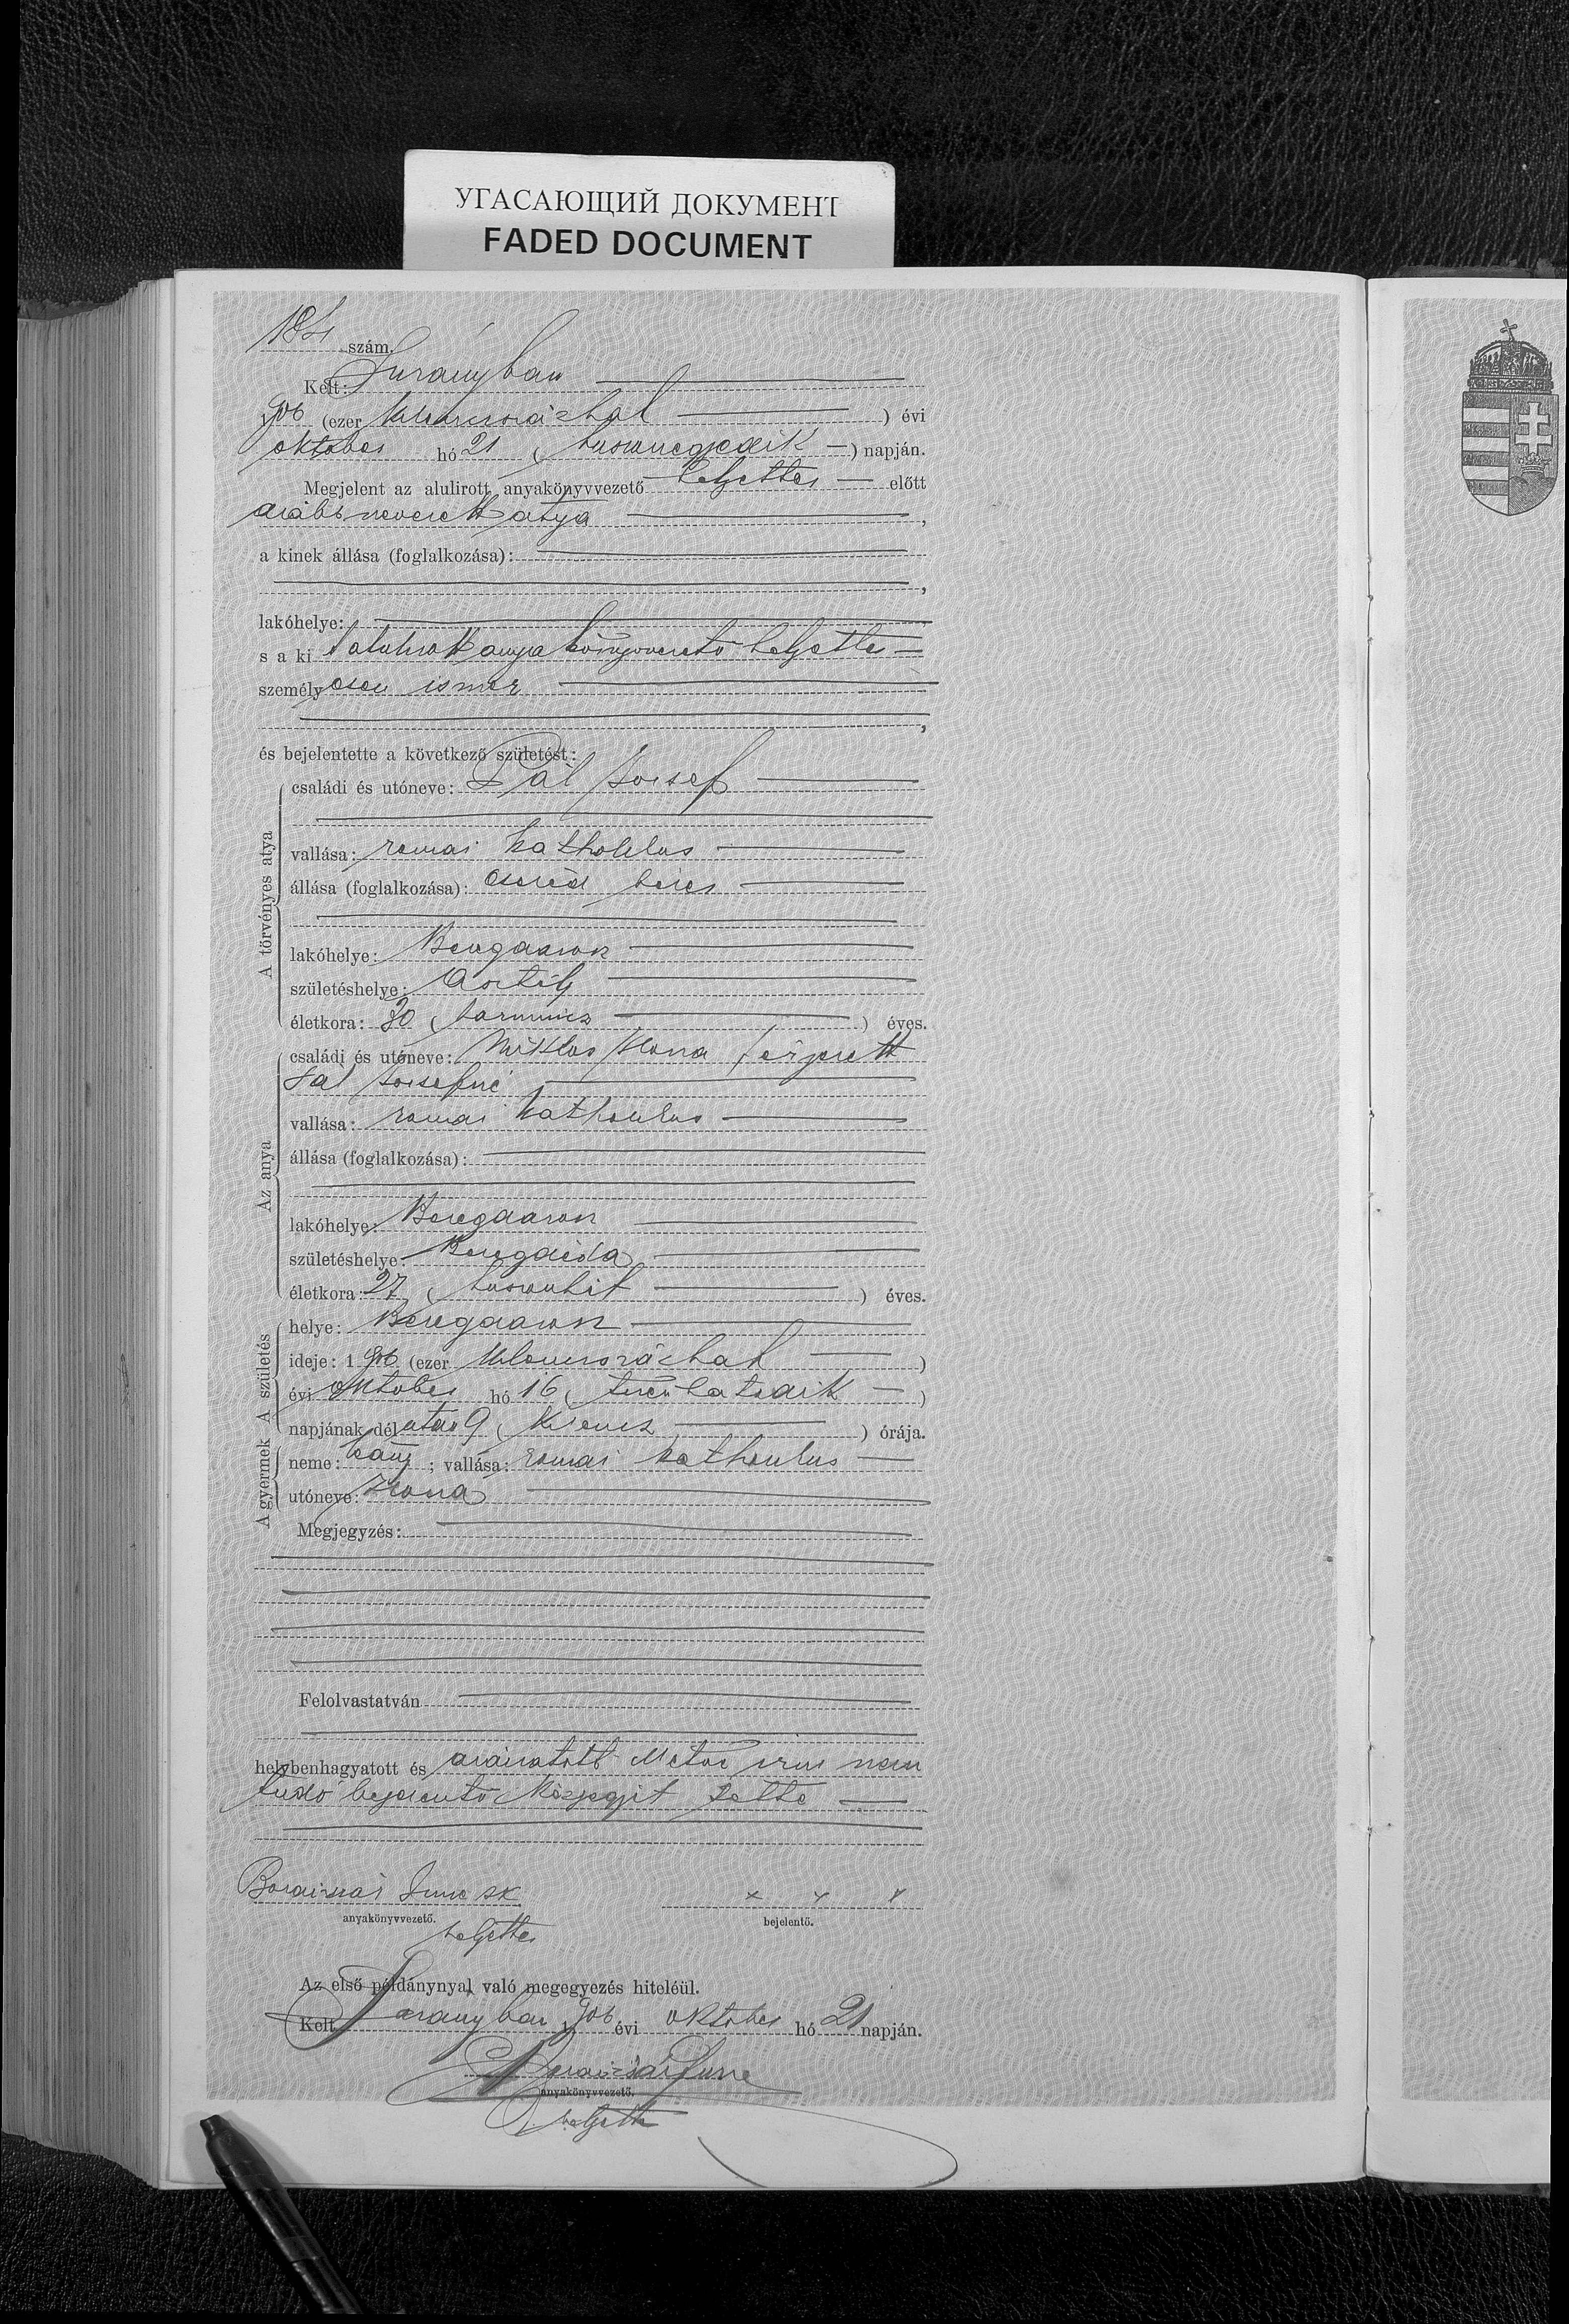 УГАСАЮЩИЙ ДОКУМЕНТ
FADED DOCUMENT
szám.
Kelt:
1906 (ezer kilenczszázhat) évi
október hó 21 (huszonegyedik) napján.
Megjelent az alulirott anyakönyvvezető helyettes előtt
alább nevezett atya,
a kinek állása (foglalkozása):
lakóhelye:
s a ki alulirott anyakönyvvezető helyettes
személyesen ismer,
és bejelentette a következő születést:
A törvényes atya
családi és utóneve: Pál József
vallása: romai katholikus
állása (foglalkozása): cseléd béres
lakóhelye:
születéshelye:
életkora: 30 (harmincz) éves.
Az anya
családi és utóneve: Miklos Ilona férjezett
Pál Józsefné
vallása: romai katholikus
állása (foglalkozása):
lakóhelye:
születéshelye:
életkora: 27 (huszonhét) éves.
A születés
helye:
ideje: 1906 (ezer kilenczszázhat)
évi október hó 16 (tizenhatodik)
napjának délután 9 (kilencz) órája.
A gyermek
neme: leány; vallása: romai katholikus
utóneve: Ilona
Megjegyzés:
Felolvastatván
helybenhagyatott és aláiratott Mctve irni nem
tudó bejelentő kézjegyét tette
anyakönyvvezető.
helyettes
x x x
bejelentő.
Az első példánynyal való megegyezés hiteléül.
Kelt 1906 évi október hó 21 napján.
anyakönyvvezető.
helyettes